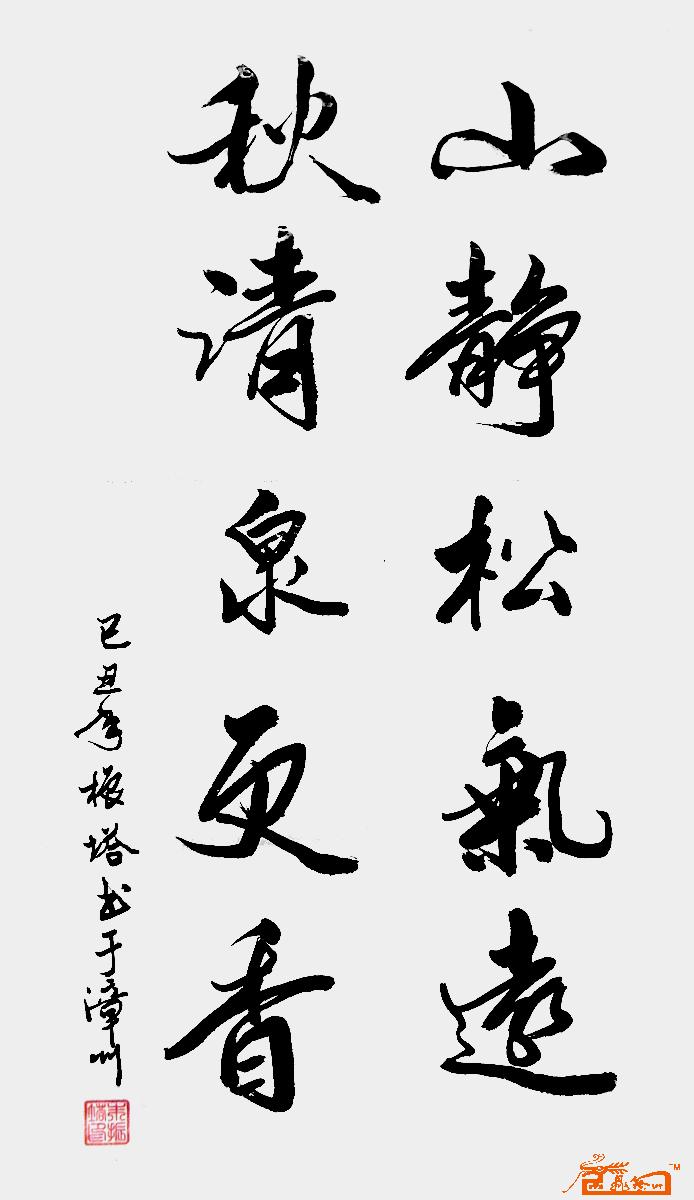 山静松氣遠
秋清泉更香
己丑年振塔书于漳州